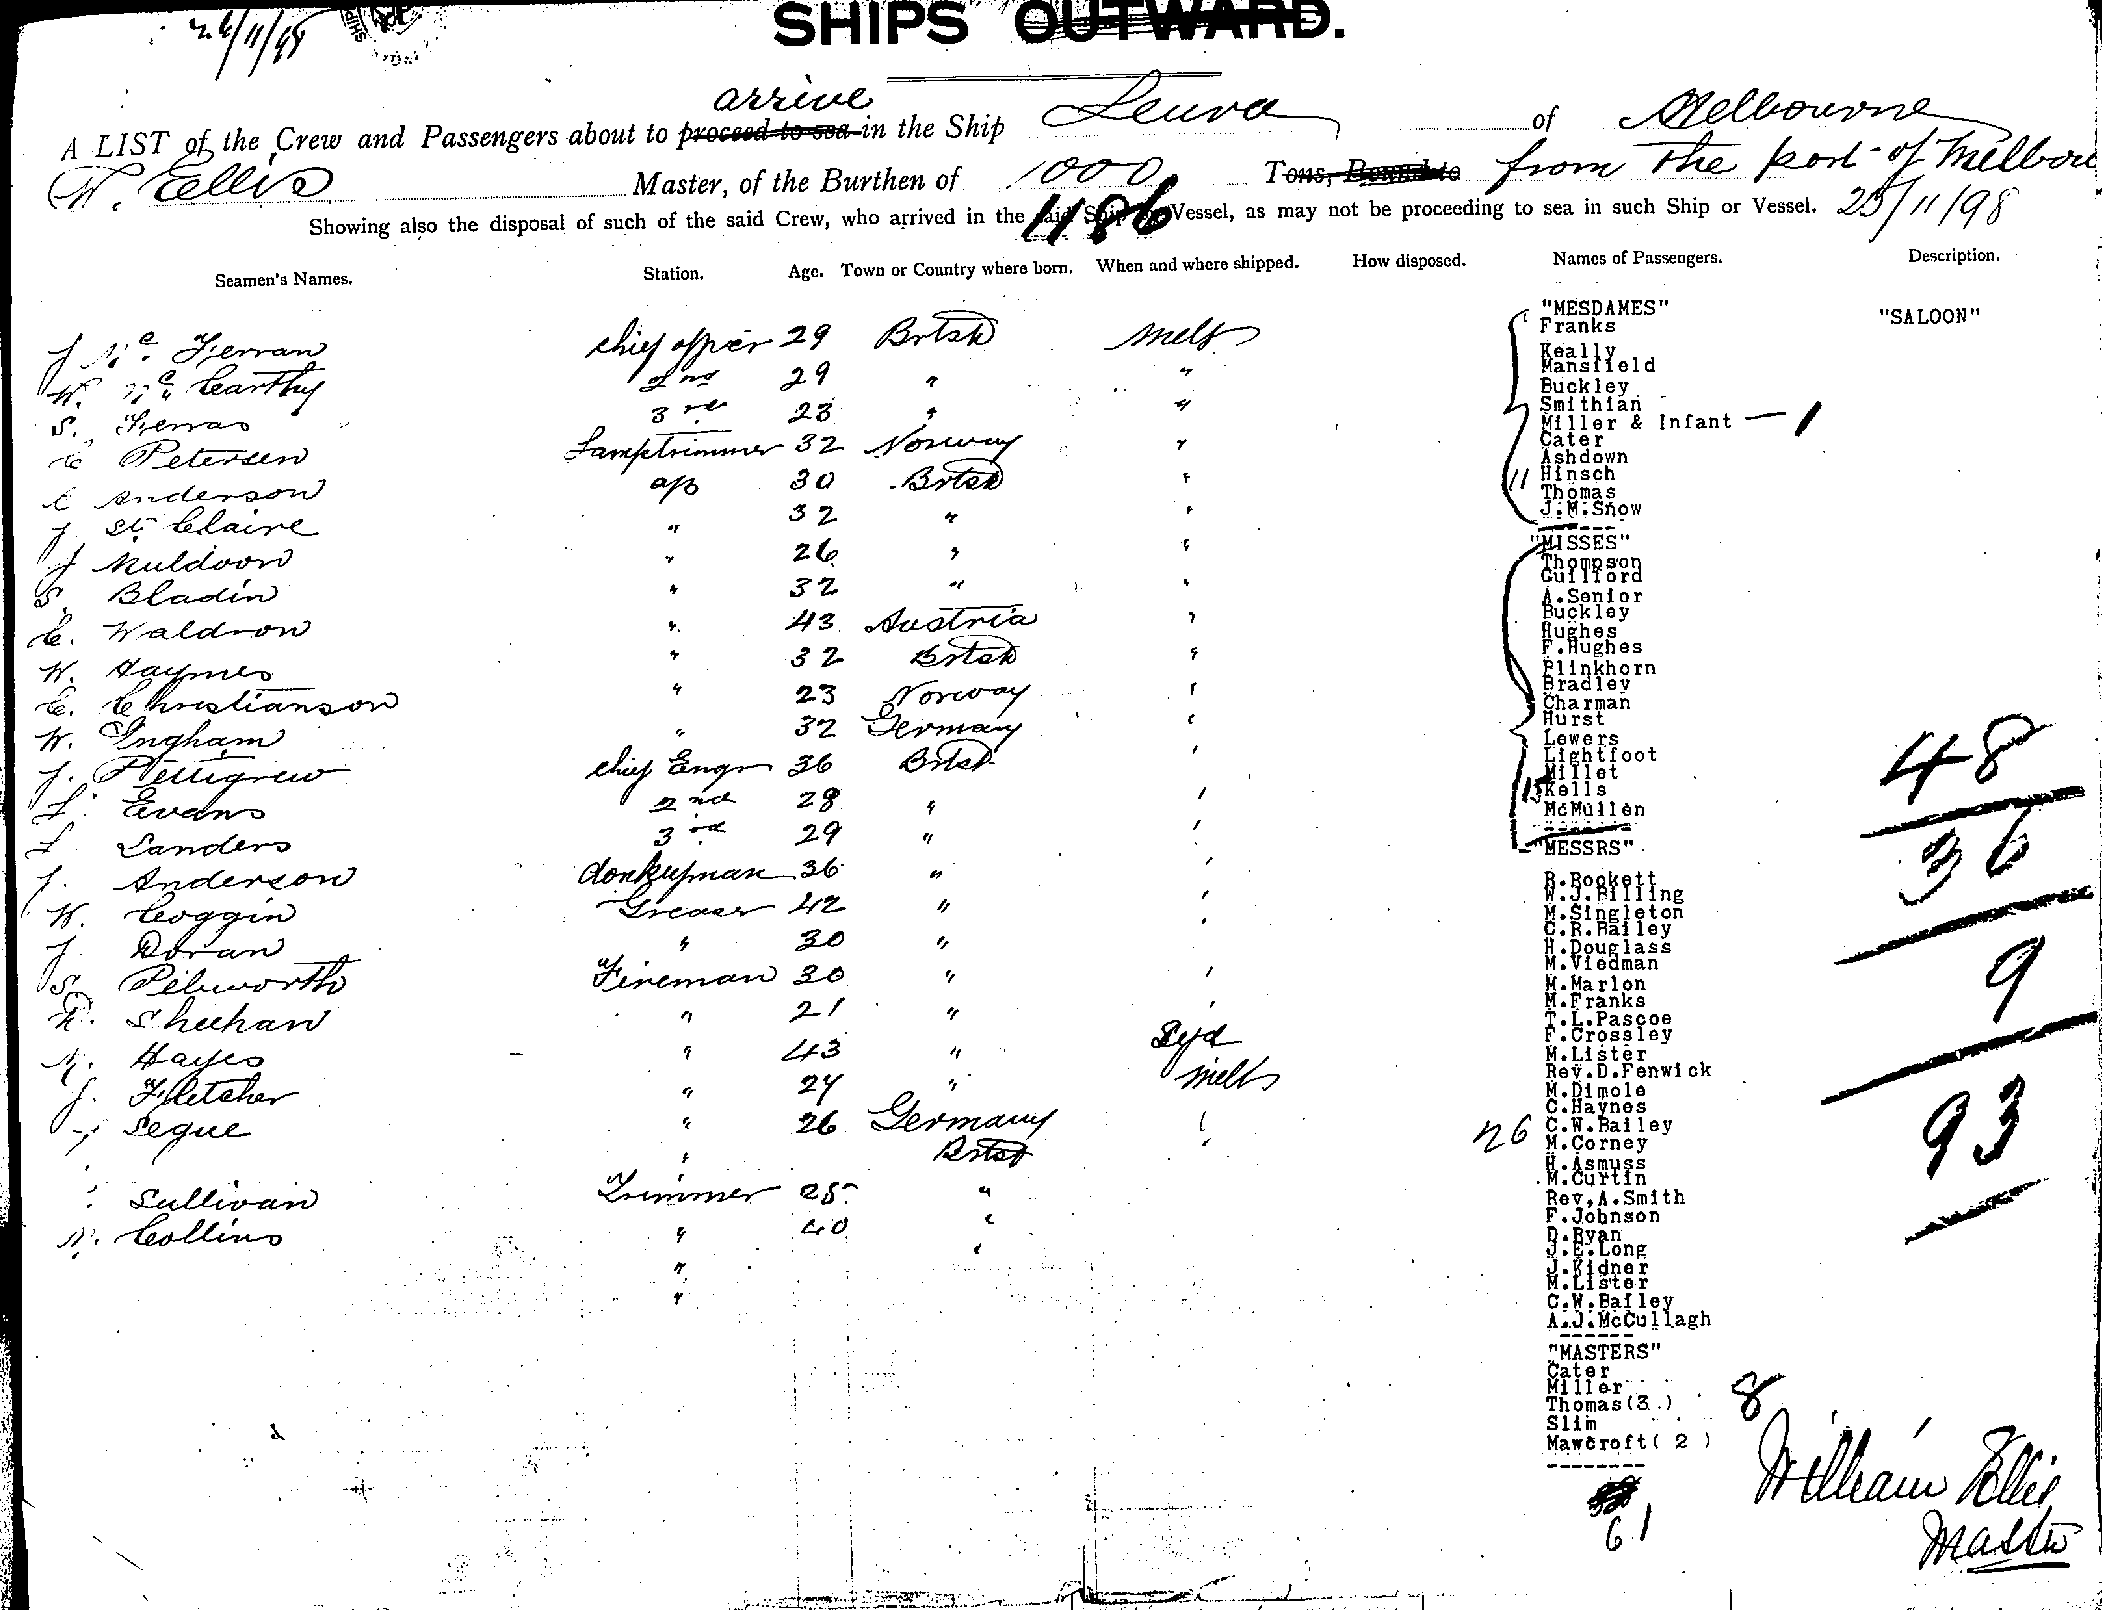 26/11/98
SHIPS OUTWARD.
arrive
A LIST of the Crew and Passengers about to proceed to sea in the Ship Leura of Melbourne
W. Ellis Master, of the Burthen of 1000 Tons, Bound to from the port of Melbou
Showing also the disposal of such of the said Crew, who arrived in the said Ship or Vessel, as may not be proceeding to sea in such Ship or Vessel. 25/11/98
486
Seamen's Names. Station. Age. Town or Country where born. When and where shipped. How disposed. Names of Passengers. Description.
J Mc Ferran chief officer 29 Brtsh Melb
W. Mc Carthy 2nd 29 " "
S. Ferras 3rd 23 " "
C Petersen Lamptrimmer 32 Norway "
C Anderson a/b 30 Brtsh "
J St. Claire " 32 " "
J Muldoon " 26 " "
S. Bladin " 32 " "
C. Waldron " 43 Austria "
W. Haymes " 32 Brtsh "
E. Christianson " 23 Norway "
W. Ingham " 32 Germany "
J. Pettigrew chief Engr 36 Brtsh "
L. Evans 2nd 28 " "
L. Sanders 3rd 29 " "
J. Anderson donkeyman 36 " "
W. Coggin Greaser 42 " "
J. Doran " 30 " "
S. Pibworth Fireman 30 " "
R. Sheehan " 21 " "
M. Hayes " 43 " Syd
J. Fletcher " 24 " Melb
J Segue " 26 Germany "
" Brtsh "
Sullivan Trimmer 25 "
M. Collins " 40 "
" "
"
"MESDAMES" "SALOON"
Franks
Keally
Mansfield
Buckley
Smithian
Miller & Infant — 1
Cater
Ashdown
11 Hinsch
Thomas
J.M.Snow
"MISSES"
Thompson
Guilford
A.Senior
Buckley
Hughes
F.Hughes
Plinkhorn
Bradley
Charman
Hurst
Lewers
Lightfoot
Millet
15 Kells
McMullen
"MESSRS"
R.Rockett
W.J.Billing
M.Singleton
C.R.Bailey
H.Douglass
M.Viedman
M.Marlon
M.Franks
T.L.Pascoe
F.Crossley
M.Lister
Rev.D.Fenwick
M.Dimole
C.Haynes
26 C.W.Bailey
M.Corney
H.Asmuss
M.Curtin
Rev,A.Smith
F.Johnson
D.Ryan
J.E.Long
J.Kidner
M.Lister
C.W.Bailey
A.J.McCullagh
"MASTERS"
Cater
Miller
Thomas(3.) 8
Slim
Mawcroft( 2 )
61
48
36
9
93
William Ellis
Master